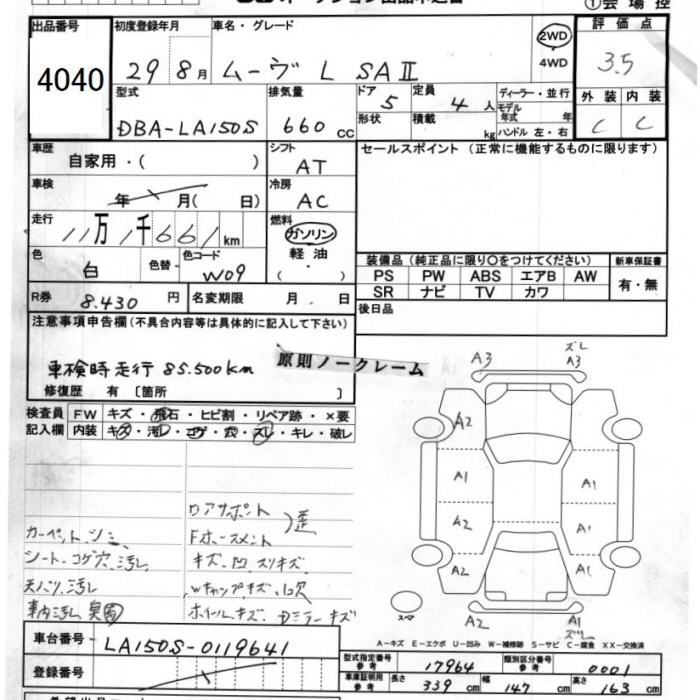 ①会場控
出品番号
4040
初度登録年月
29 8月
車名・グレード
ムーヴ L SAⅡ
2WD
4WD
評価点
3.5
外装 内装
C C
型式
DBA-LA150S
排気量
660 cc
ドア 5
形状
定員 4人
積載 kg
ディーラー・並行
モデル年式 年
ハンドル 左・右
車歴
自家用・( )
シフト
AT
セールスポイント (正常に機能するものに限ります)
車検
年 月( 日)
冷房
AC
走行
11万1千661km
燃料
ガソリン
軽油
・
( )
色
白
色替・
色コード
W09
装備品 (純正品に限り○をつけてください)
新車保証書
PS PW ABS エアB AW
有・無
SR ナビ TV カワ
R券 8.430円
名変期限 月 日
後日品
注意事項申告欄(不具合内容等は具体的に記入して下さい)
車検時走行 85.500km
原則ノークレーム
修復歴 有 〔箇所 〕
検査員記入欄
FW キズ・飛石・ヒビ割・リペア跡・×要
内装 キズ・汚レ・コゲ・穴・スレ・キレ・破レ
ロアサポート
Fホースメント
歪
カーペットシミ
シート、コゲ穴、汚レ
天バリ、汚レ
車内汚レ臭
キズ、凹、スリキズ
ホイールキズ、Dミラーキズ
A3
ズレ
A3
A2
A1
A1
A2
A1
A2
A1
スペア
A2
A1
ズレ
A-キズ E-エクボ U-凹み W-補修跡 S-サビ C-腐食 XX-交換済
車台番号
LA150S-0119641
登録番号
型式指定番号 参考
17964
類別区分番号 参考
0001
車庫証明用 参考
長さ 339 cm
幅 147 cm
高さ 163 cm